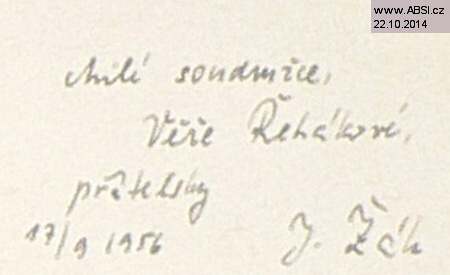 www.ABSI.cz
22.10.2014
Milé soudružce,
Věře Řehákové,
přátelsky
17/9 1956 J. Žák